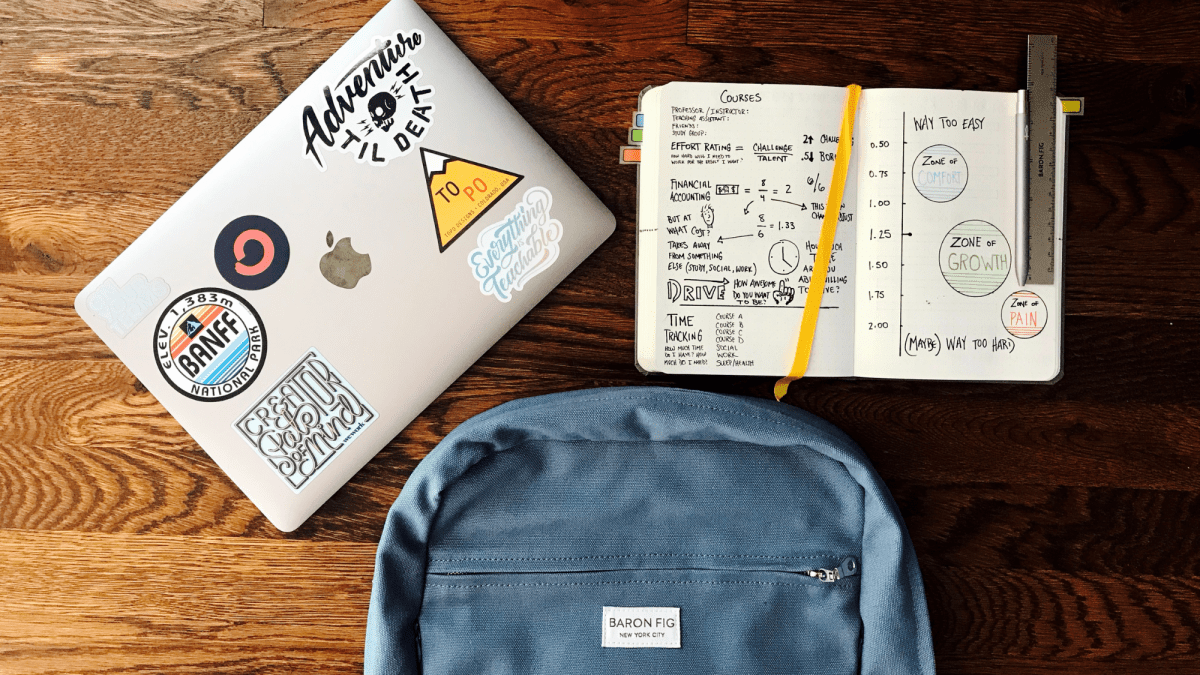 Adventure
TIL DEATH
TO
PO
TOPO DESIGNS • COLORADO, USA
Everything
is
Teachable
ELEV. 1,383m
BANFF
NATIONAL PARK
CREATOR
of Mind
wework
COURSES
PROFESSOR / INSTRUCTOR:
TEACHING ASSISTANT:
FRIENDS:
STUDY GROUP:
EFFORT RATING = CHALLENGE
TALENT
HOW HARD WILL I NEED TO
WORK FOR THE RESULT I WANT?
2↑
.5↓
FINANCIAL
ACCOUNTING
= 8/4 = 2
6/6
THIS
BUT AT
WHAT COST?
8/6 = 1.33
TAKES AWAY
FROM SOMETHING
ELSE (STUDY, SOCIAL, WORK)
DRIVE
HOW AWESOME
DO YOU WANT
TO BE?
TIME
TRACKING
HOW MUCH TIME
DO I HAVE? HOW
MUCH DO I NEED?
COURSE A
COURSE B
COURSE C
COURSE D
SOCIAL
WORK
SLEEP/HEALTH
WAY TOO EASY
0.50
0.75
1.00
1.25
1.50
1.75
2.00
ZONE OF
COMFORT
ZONE OF
GROWTH
ZONE OF
PAIN
(MAYBE) WAY TOO HARD
BARON FIG
BARON FIG
NEW YORK CITY